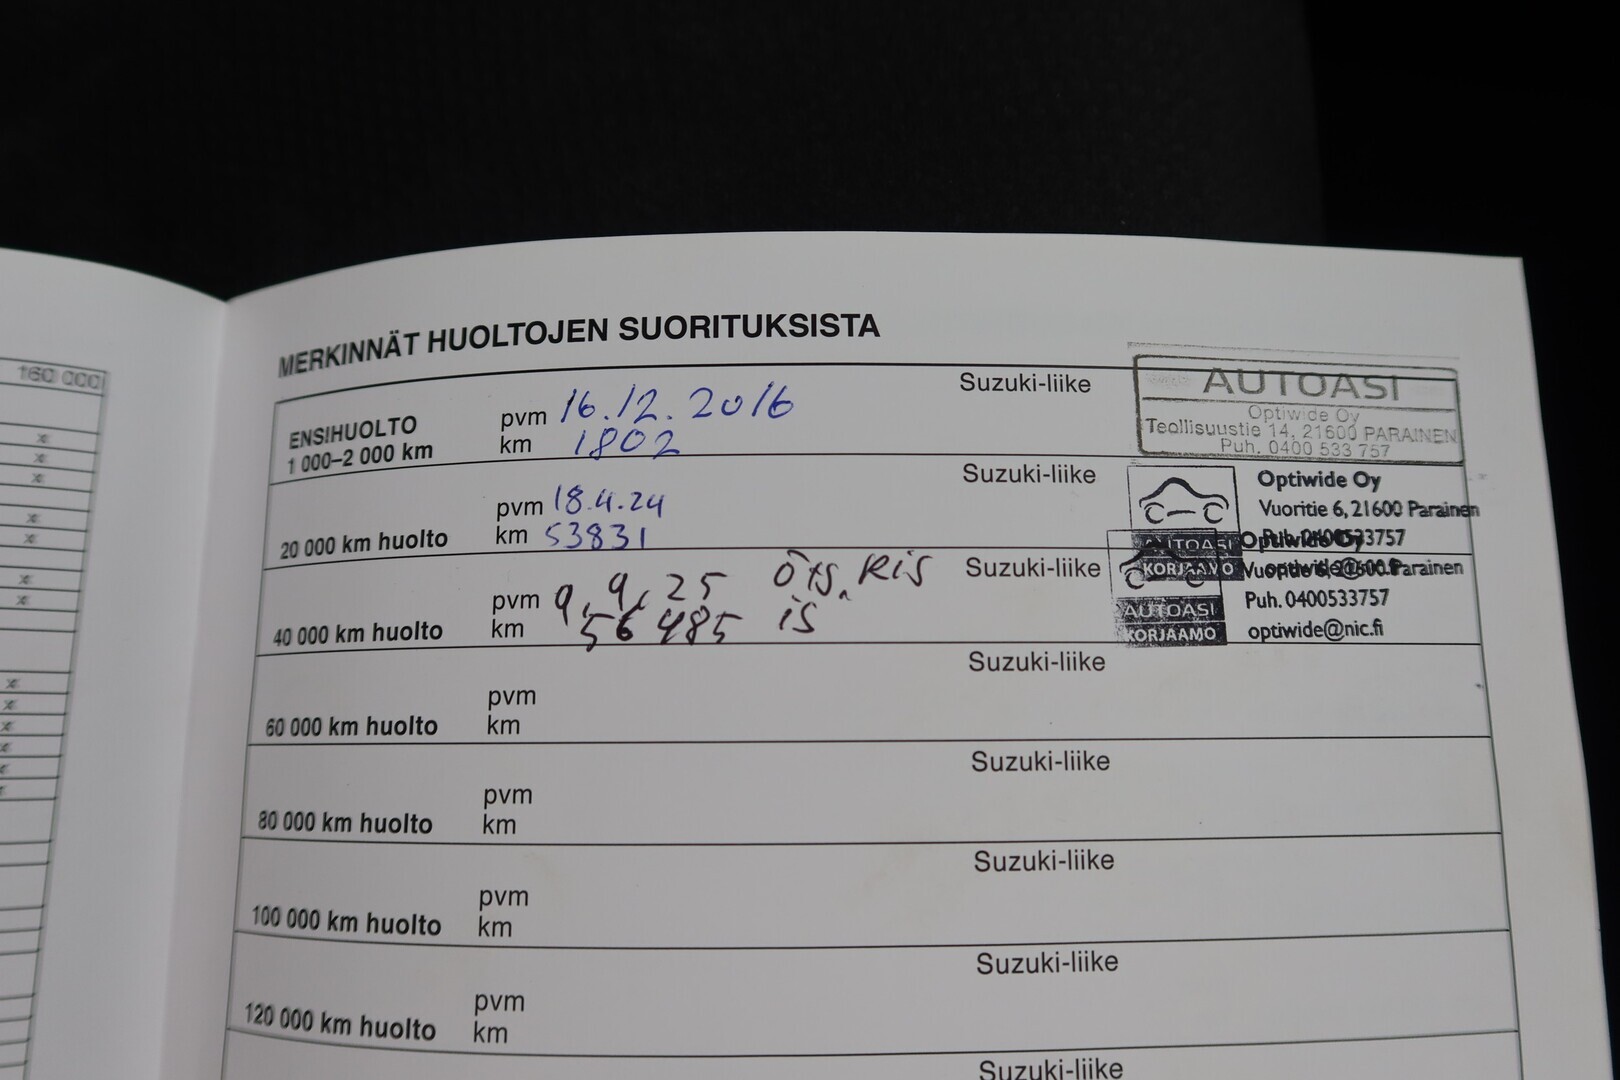 160 000
MERKINNÄT HUOLTOJEN SUORITUKSISTA
ENSIHUOLTO
1 000–2 000 km
pvm 16.12.2016
km 1802
Suzuki-liike
AUTOASI
Optiwide Oy
Teollisuustie 14, 21600 PARAINEN
Puh. 0400 533 757
20 000 km huolto
pvm 18.4.24
km 53831
Suzuki-liike
Optiwide Oy
Vuoritie 6, 21600 Parainen
Puh. 0400533757
optiwide@nic.fi
AUTOASI
KORJAAMO
40 000 km huolto
pvm 9.9.25
km 56485
Suzuki-liike
Optiwide Oy
Vuoritie 6, 21600 Parainen
Puh. 0400533757
optiwide@nic.fi
AUTOASI
KORJAAMO
60 000 km huolto
pvm
km
Suzuki-liike
80 000 km huolto
pvm
km
Suzuki-liike
100 000 km huolto
pvm
km
Suzuki-liike
120 000 km huolto
pvm
km
Suzuki-liike
Suzuki-liike